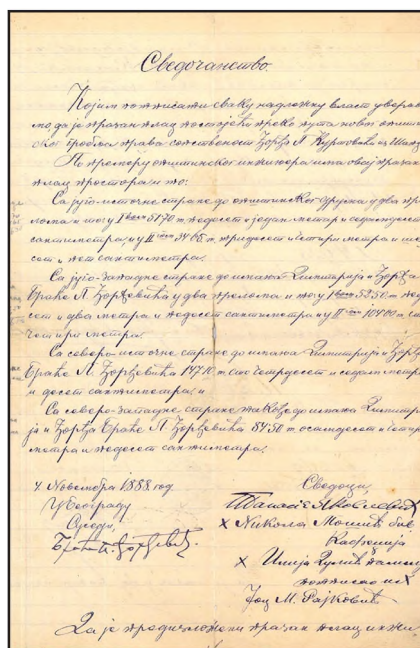 Сведочанство.
Којим потписати сваку надложну власт уверава
мо да је празан плац постојећи преко пута новог општин
ског гробља права сопственост Ђорђа П. Куртовића из Шапца
По премеру општинског инжињера има овај празан
плац простора и то:
Са југо-источне стране до општинског друма у два пре
лома и то у I 51·70 m. педесет и један метар и седамдесет
сантиметра; и у II 34·65 m. тридесет и четири метра и ше
сет и пет сантиметра.
Са југо-западне стране до имања Димитрија и Ђорђа
Браће П. Ђорђевића у два прелома и то у I 52·50 m. педе
сет и два метра и педесет сантиметра и у II 104·00 m. сто
четири метра.
Са северо-источне стране до имања Димитрија и Ђорђа
Браће П. Ђорђевића 147·10 m. сто четрдесет и седам метра
и десет сантиметра; и
Са северо-западне стране такође до имања Димитри
ја и Ђорђа Браће П. Ђорђевића 84·50 m. осамдесет и четири
метра и педесет сантиметра.
4. Новембра 1888. год. Сведоци,
у Београду
Суседи, X Никола Мошић бив
Кафеџија
Јоц. М. Рајковић
Да је предизложени празан плац инжи